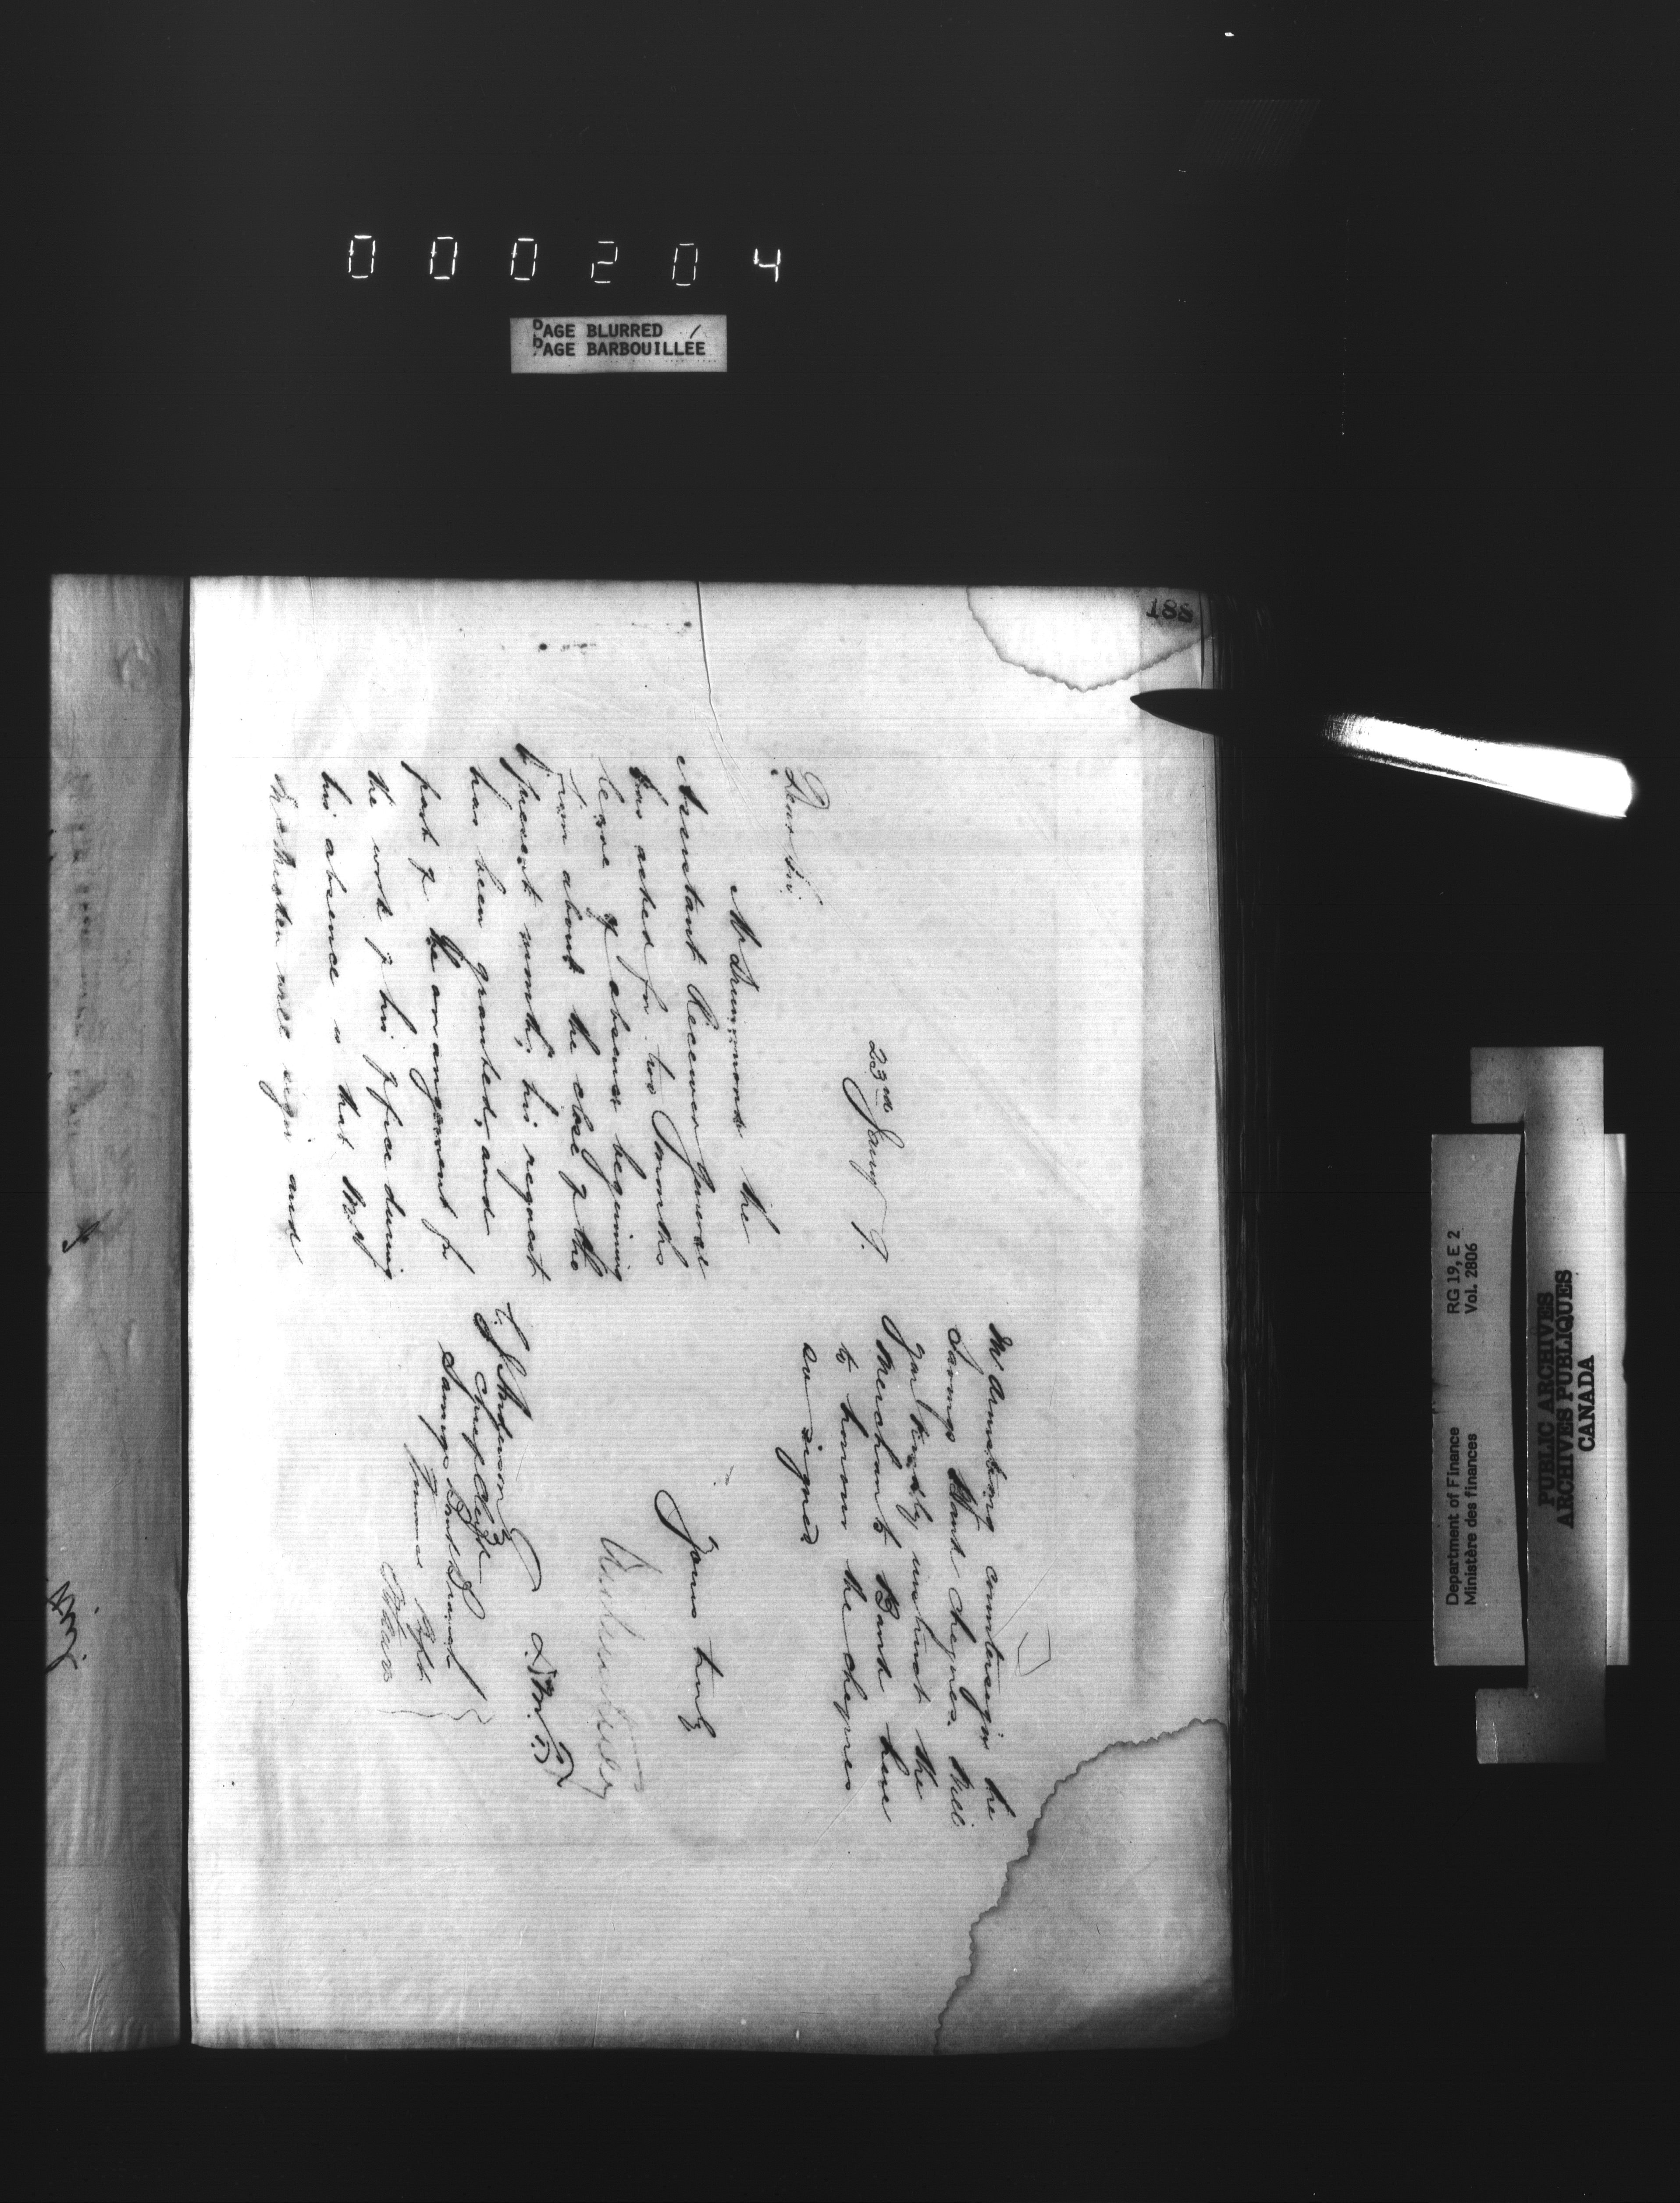 000204
PAGE BLURRED
PAGE BARBOUILLÉE
188
23rd Jany 9.
Dear Sir,
Mr Drummond the
Assistant Receiver General
has asked for two months
leave of absence beginning
from about the close of the
present month, his request
has been granted, and
part of the arrangement for
the work of his office during
his absence is that Mr
will sign and
Mr Armstrong countersign the
Savings Bank cheques. Will
you kindly instruct the
Merchants Bank here
to honour the cheques
so signed
Yours truly
D.M.F.
C.J. Anderson
Chief Clerk
Savings Bank Branch
Finance Dept.
Ottawa
Department of Finance RG 19, E 2
Ministère des finances Vol. 2806
PUBLIC ARCHIVES
ARCHIVES PUBLIQUES
CANADA